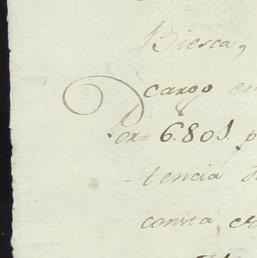 Biesca,
cargo en
Por 6.801. p
tencia d
consta e